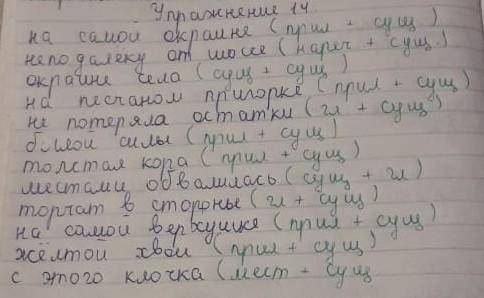 Упражнение 14
на самой окраине (прил + сущ)
неподалёку от шоссе (нареч + сущ)
окраине села (сущ + сущ)
на песчаном пригорке (прил + сущ)
не потеряла остатки (гл + сущ)
былой силы (прил + сущ)
толстая кора (прил + сущ)
местами обвалилась (сущ + гл)
торчат в стороны (гл + сущ)
на самой верхушке (прил + сущ)
жёлтой хвои (прил + сущ)
с этого клочка (мест + сущ